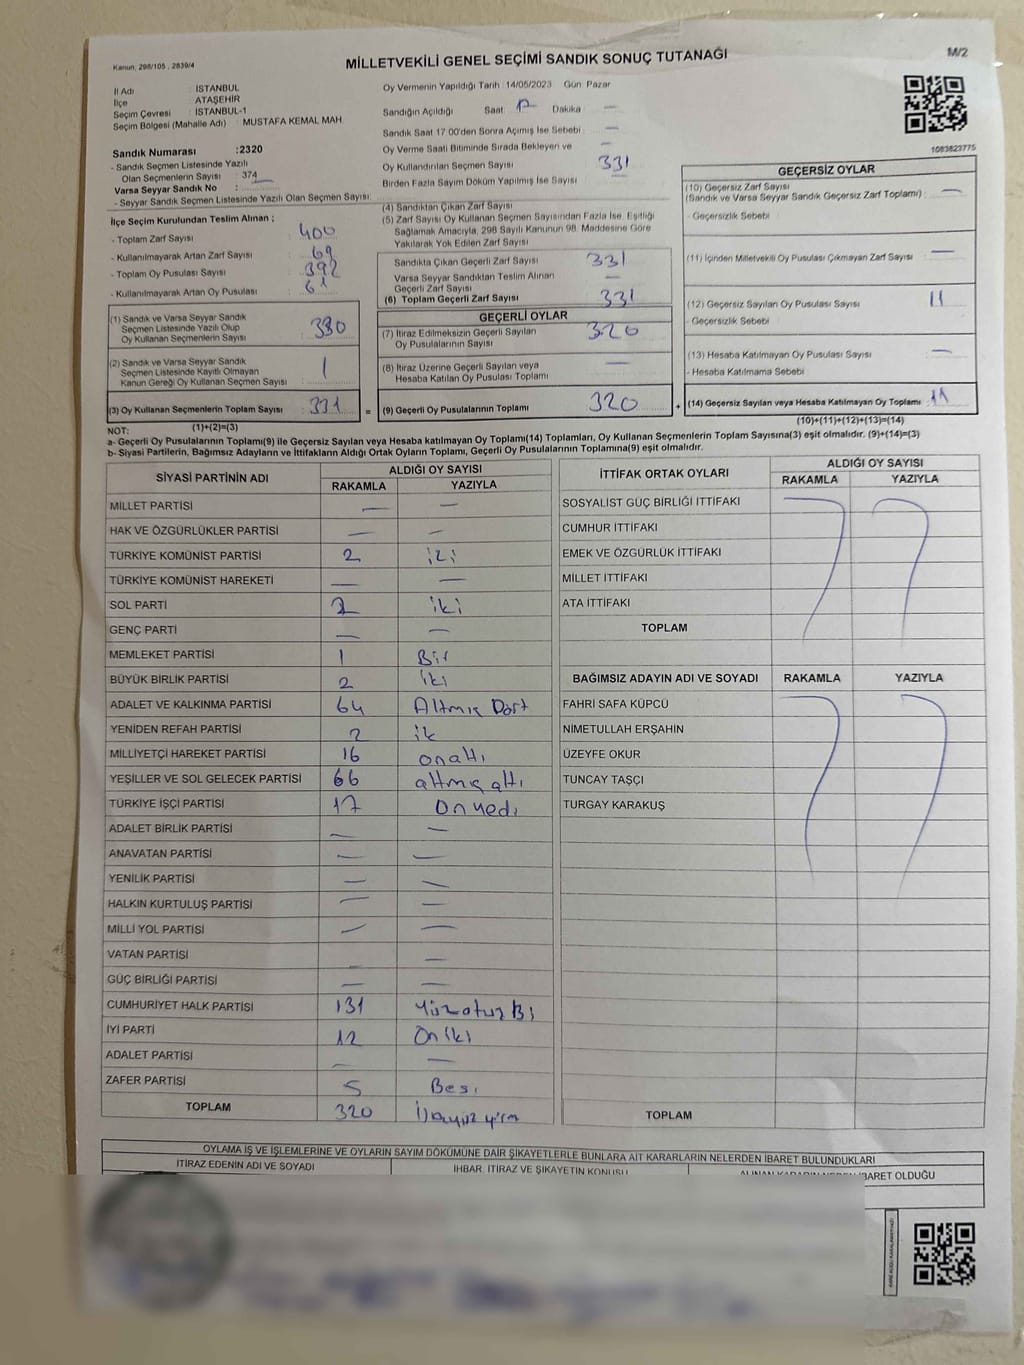 Kanun, 298/105 , 2839/4
MİLLETVEKİLİ GENEL SEÇİMİ SANDIK SONUÇ TUTANAĞI
M/2
İl Adı : İSTANBUL
İlçe : ATAŞEHİR
Seçim Çevresi : İSTANBUL-1
Seçim Bölgesi (Mahalle Adı) : MUSTAFA KEMAL MAH
Sandık Numarası :2320
- Sandık Seçmen Listesinde Yazılı
Olan Seçmenlerin Sayısı : 374
Varsa Seyyar Sandık No :
- Seyyar Sandık Seçmen Listesinde Yazılı Olan Seçmen Sayısı:
Oy Vermenin Yapıldığı Tarih :14/05/2023 Gün Pazar
Sandığın Açıldığı Saat Dakika —
Sandık Saat 17:00'den Sonra Açılmış İse Sebebi : —
Oy Verme Saati Bitiminde Sırada Bekleyen ve —
Oy Kullandırılan Seçmen Sayısı 331
Birden Fazla Sayım Döküm Yapılmış İse Sayısı : —
1083823775
İlçe Seçim Kurulundan Teslim Alınan ;
- Toplam Zarf Sayısı : 400
- Kullanılmayarak Artan Zarf Sayısı : 69
- Toplam Oy Pusulası Sayısı : 392
- Kullanılmayarak Artan Oy Pusulası : 61
(1) Sandık ve Varsa Seyyar Sandık
Seçmen Listesinde Yazılı Olup
Oy Kullanan Seçmenlerin Sayısı : 330
(2) Sandık ve Varsa Seyyar Sandık
Seçmen Listesinde Kayıtlı Olmayan
Kanun Gereği Oy Kullanan Seçmen Sayısı : 1
(3) Oy Kullanan Seçmenlerin Toplam Sayısı : 331
(1)+(2)=(3)
(4) Sandıktan Çıkan Zarf Sayısı
(5) Zarf Sayısı Oy Kullanan Seçmen Sayısından Fazla İse, Eşitliği
Sağlamak Amacıyla, 298 Sayılı Kanunun 98. Maddesine Göre
Yakılarak Yok Edilen Zarf Sayısı
Sandıkta Çıkan Geçerli Zarf Sayısı 331
Varsa Seyyar Sandıktan Teslim Alınan —
Geçerli Zarf Sayısı
(6) Toplam Geçerli Zarf Sayısı 331
GEÇERLİ OYLAR
(7) İtiraz Edilmeksizin Geçerli Sayılan 320
Oy Pusulalarının Sayısı
(8) İtiraz Üzerine Geçerli Sayılan veya —
Hesaba Katılan Oy Pusulası Toplamı
= (9) Geçerli Oy Pusulalarının Toplamı 320
GEÇERSİZ OYLAR
(10) Geçersiz Zarf Sayısı
(Sandık ve Varsa Seyyar Sandık Geçersiz Zarf Toplamı) : —
- Geçersizlik Sebebi :
(11) İçinden Milletvekili Oy Pusulası Çıkmayan Zarf Sayısı : —
(12) Geçersiz Sayılan Oy Pusulası Sayısı : 11
- Geçersizlik Sebebi
(13) Hesaba Katılmayan Oy Pusulası Sayısı : —
- Hesaba Katılmama Sebebi
+ (14) Geçersiz Sayılan veya Hesaba Katılmayan Oy Toplamı : 11
(10)+(11)+(12)+(13)=(14)
NOT:
a- Geçerli Oy Pusulalarının Toplamı(9) ile Geçersiz Sayılan veya Hesaba katılmayan Oy Toplamı(14) Toplamları, Oy Kullanan Seçmenlerin Toplam Sayısına(3) eşit olmalıdır. (9)+(14)=(3)
b- Siyasi Partilerin, Bağımsız Adayların ve İttifakların Aldığı Ortak Oyların Toplamı, Geçerli Oy Pusulalarının Toplamına(9) eşit olmalıdır.
SİYASİ PARTİNİN ADI ALDIĞI OY SAYISI
RAKAMLA YAZIYLA
MİLLET PARTİSİ — —
HAK VE ÖZGÜRLÜKLER PARTİSİ — —
TÜRKİYE KOMÜNİST PARTİSİ 2 iki
TÜRKİYE KOMÜNİST HAREKETİ — —
SOL PARTİ 2 iki
GENÇ PARTİ — —
MEMLEKET PARTİSİ 1 Bir
BÜYÜK BİRLİK PARTİSİ 2 iki
ADALET VE KALKINMA PARTİSİ 64 Altmış Dört
YENİDEN REFAH PARTİSİ 2 ik
MİLLİYETÇİ HAREKET PARTİSİ 16 onaltı
YEŞİLLER VE SOL GELECEK PARTİSİ 66 altmış altı
TÜRKİYE İŞÇİ PARTİSİ 17 Onyedi
ADALET BİRLİK PARTİSİ — —
ANAVATAN PARTİSİ — —
YENİLİK PARTİSİ — —
HALKIN KURTULUŞ PARTİSİ — —
MİLLİ YOL PARTİSİ — —
VATAN PARTİSİ — —
GÜÇ BİRLİĞİ PARTİSİ — —
CUMHURİYET HALK PARTİSİ 131 Yüzotuz Bi
İYİ PARTİ 12 On iki
ADALET PARTİSİ — —
ZAFER PARTİSİ 5 Beşi
TOPLAM 320
İTTİFAK ORTAK OYLARI ALDIĞI OY SAYISI
RAKAMLA YAZIYLA
SOSYALİST GÜÇ BİRLİĞİ İTTİFAKI
CUMHUR İTTİFAKI
EMEK VE ÖZGÜRLÜK İTTİFAKI
MİLLET İTTİFAKI
ATA İTTİFAKI
TOPLAM
BAĞIMSIZ ADAYIN ADI VE SOYADI RAKAMLA YAZIYLA
FAHRİ SAFA KÜPCÜ
NİMETULLAH ERŞAHİN
ÜZEYFE OKUR
TUNCAY TAŞÇI
TURGAY KARAKUŞ
TOPLAM
OYLAMA İŞ VE İŞLEMLERİNE VE OYLARIN SAYIM DÖKÜMÜNE DAİR ŞİKAYETLERLE BUNLARA AİT KARARLARIN NELERDEN İBARET BULUNDUKLARI
İTİRAZ EDENİN ADI VE SOYADI İHBAR, İTİRAZ VE ŞİKAYETİN KONUSU ALINAN KARARIN NEDEN İBARET OLDUĞU